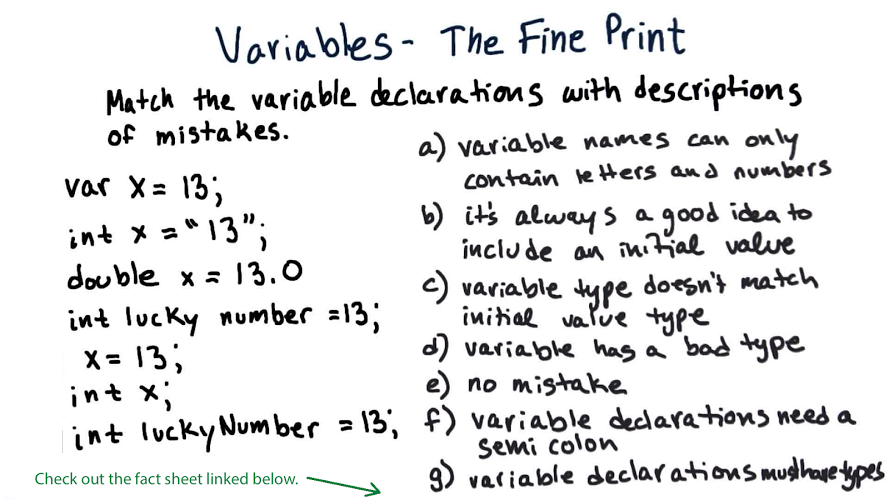 Variables - The Fine Print
Match the variable declarations with descriptions
of mistakes.
var x = 13;
int x = "13";
double x = 13.0
int lucky number = 13;
x = 13;
int x;
int luckyNumber = 13;
a) variable names can only
contain letters and numbers
b) it's always a good idea to
include an initial value
c) variable type doesn't match
initial value type
d) variable has a bad type
e) no mistake
f) variable declarations need a
semi colon
g) variable declarations must have types
Check out the fact sheet linked below.